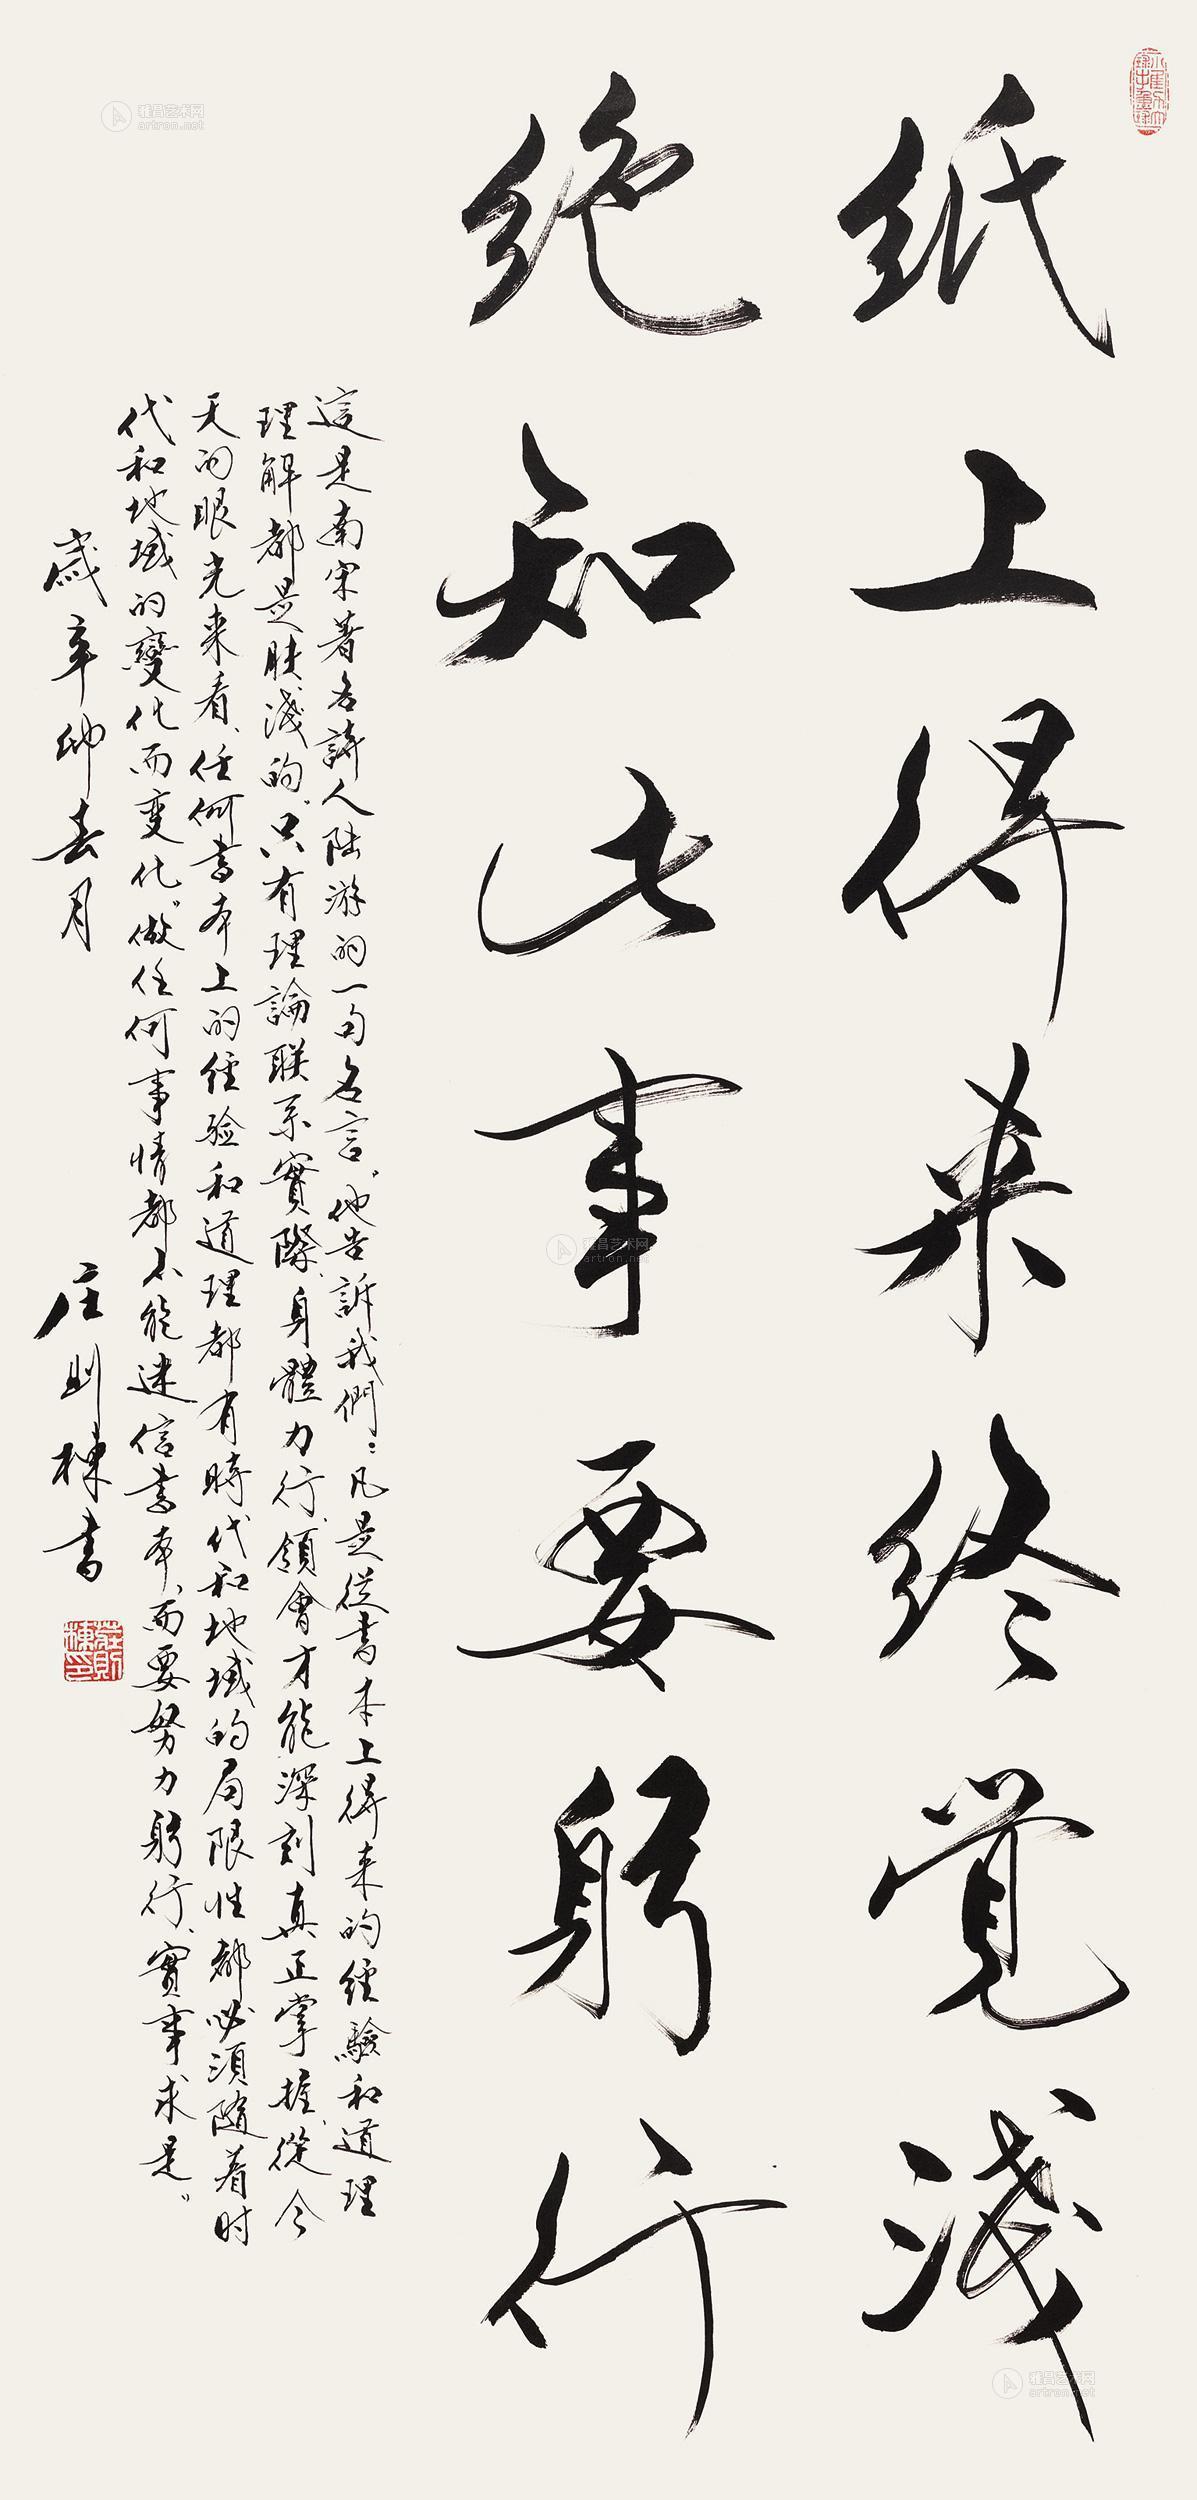 纸上得来终觉浅
绝知此事要躬行
這是南宋著名詩人陆游的一句名言。他告訴我們：凡是從書本上得来的經驗和道理
理解都是肤淺的。只有理論联系實際、身體力行、領會才能深刻真正掌握。從今
天的眼光来看、任何書本上的經验和道理都有時代和地域的局限性都必須隨着时
代和地域的變化而变化。做任何事情都不能迷信書本、而要努力躬行、實事求是。
歲辛卯春月
庄则棟書
莊則棟印
雅昌艺术网
artron.net
雅昌艺术网
artron.net
雅昌艺术网
artron.net